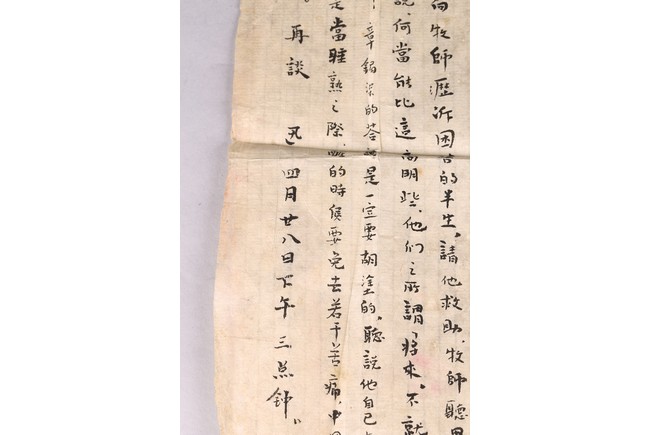 向牧師瀝訴困苦的半生,請他救助,牧師聽畢
說,何當能比這高明些,他們之所謂「將來」不就
章錫琛的答話是一定要胡塗的,聽說他自己
是當睡熟之際,醒的時候要免去若干苦痛,中國
再談 迅 四月廿八日下午三点鈡。